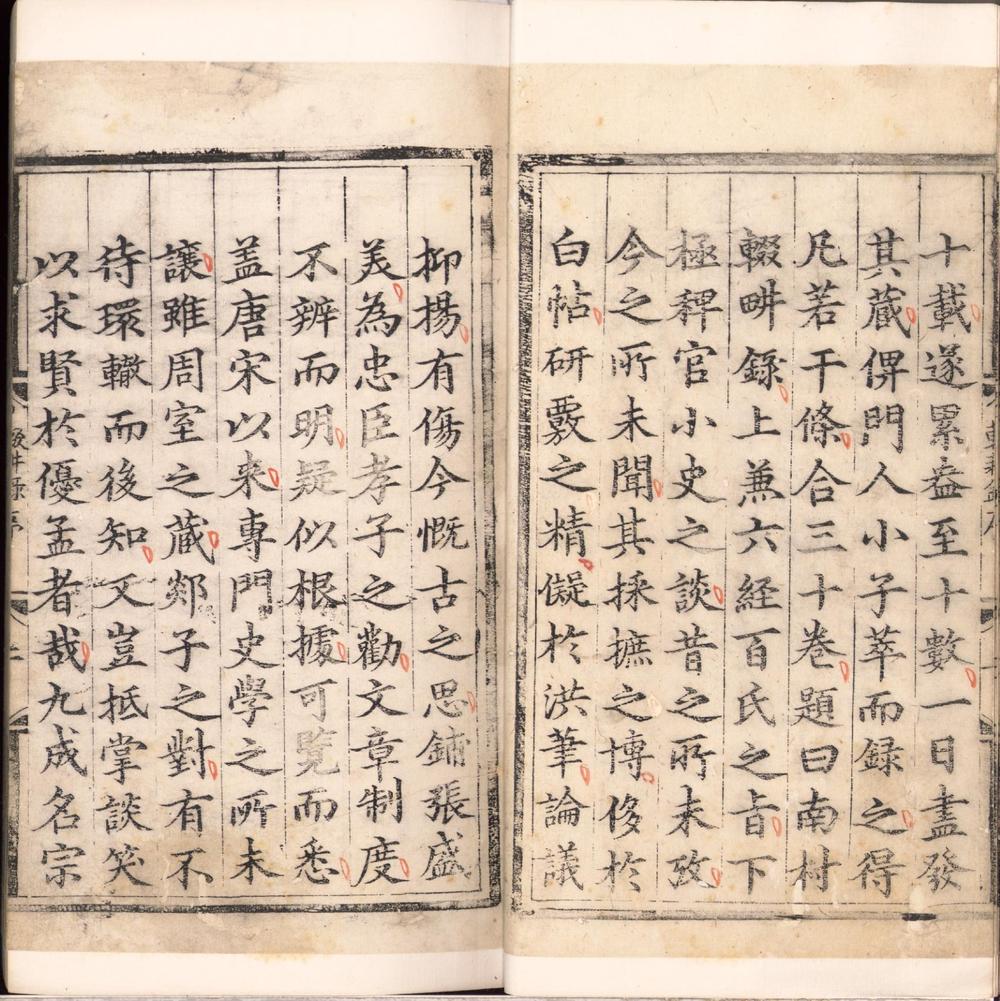 十載遂累盎至十數一日盡發
其蔵俾門人小子萃而録之得
凡若干條合三十卷題曰南村
輟畊錄上兼六経百氏之旨下
極稗官小史之談昔之所未攷
今之所未聞其採摭之博侈於
白帖研覈之精儗於洪筆論議
抑揚有傷今慨古之思鋪張盛
美為忠臣孝子之勸文章制度
不辨而明疑似根據可覽而悉
盖唐宋以来專門史學之所未
讓雖周室之蔵郯子之對有不
待環轍而後知又豈抵掌談笑
以求賢於優孟者哉九成名宗